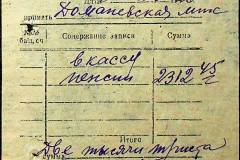 принять Доманевская мтс
№№ бал. сч. Содержание записи Сумма
в кассу
пенсии 2312 45
Итого
Две тысячи триста
Сумма